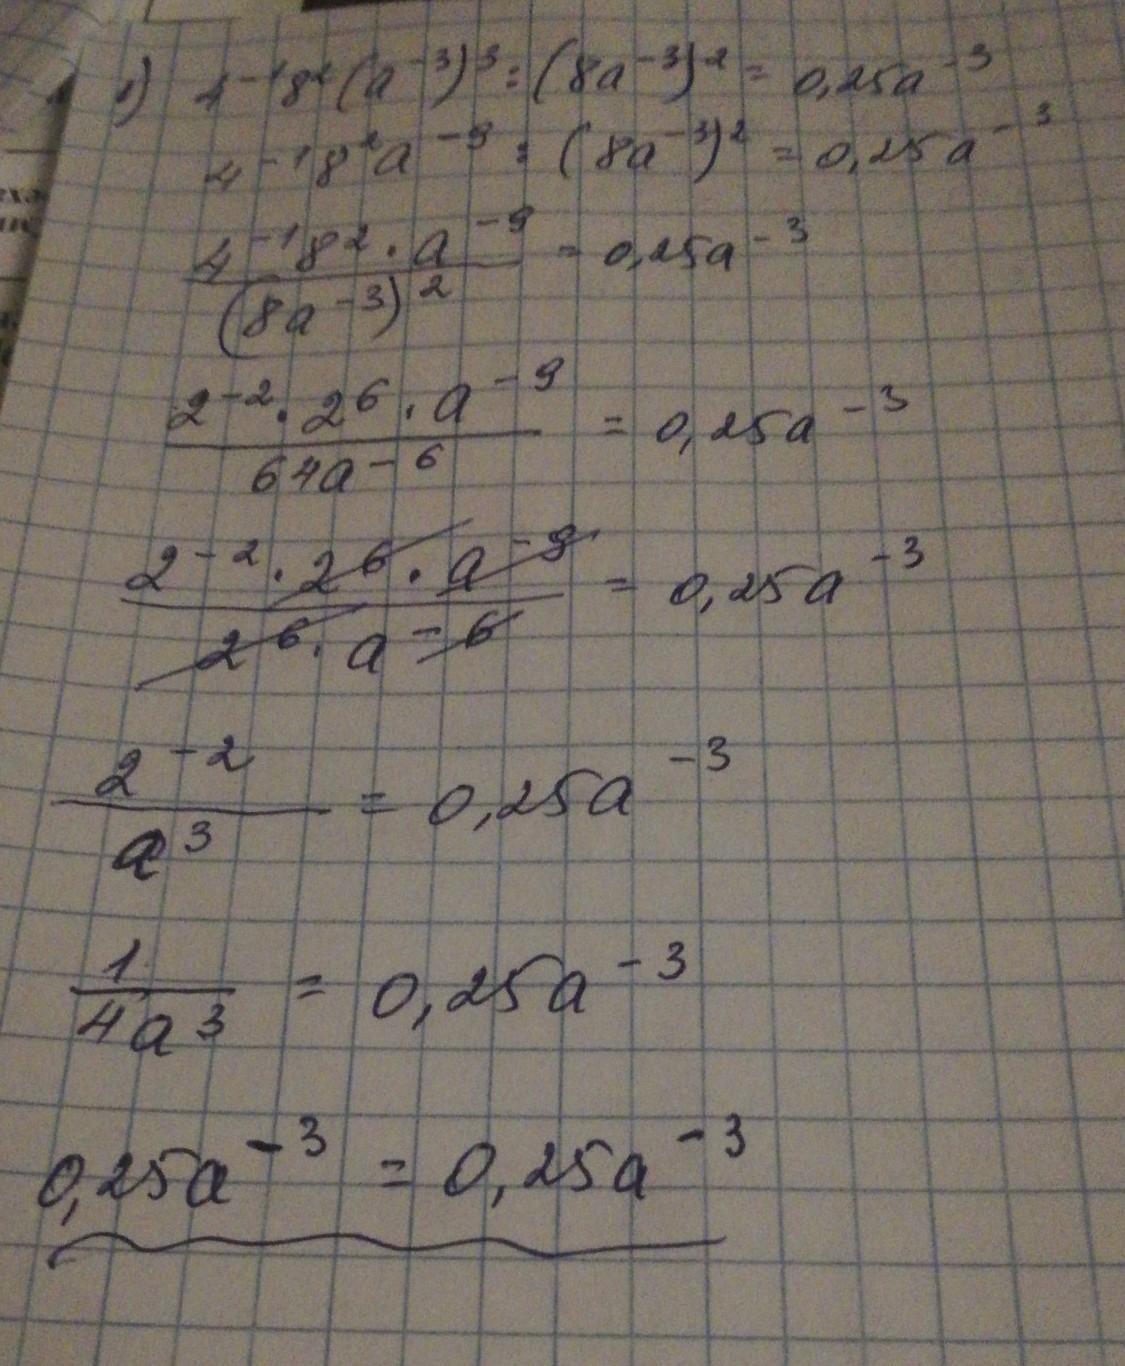 1) 4⁻¹8²(a⁻³)³ : (8a⁻³)² = 0,25a⁻³
4⁻¹8²a⁻⁹ : (8a⁻³)² = 0,25a⁻³
4⁻¹8² · a⁻⁹ / (8a⁻³)² = 0,25a⁻³
2⁻² · 2⁶ · a⁻⁹ / 64a⁻⁶ = 0,25a⁻³
2⁻² · 2⁶ · a⁻⁹ / 2⁶ · a⁻⁶ = 0,25a⁻³
2⁻² / a³ = 0,25a⁻³
1 / 4a³ = 0,25a⁻³
0,25a⁻³ = 0,25a⁻³